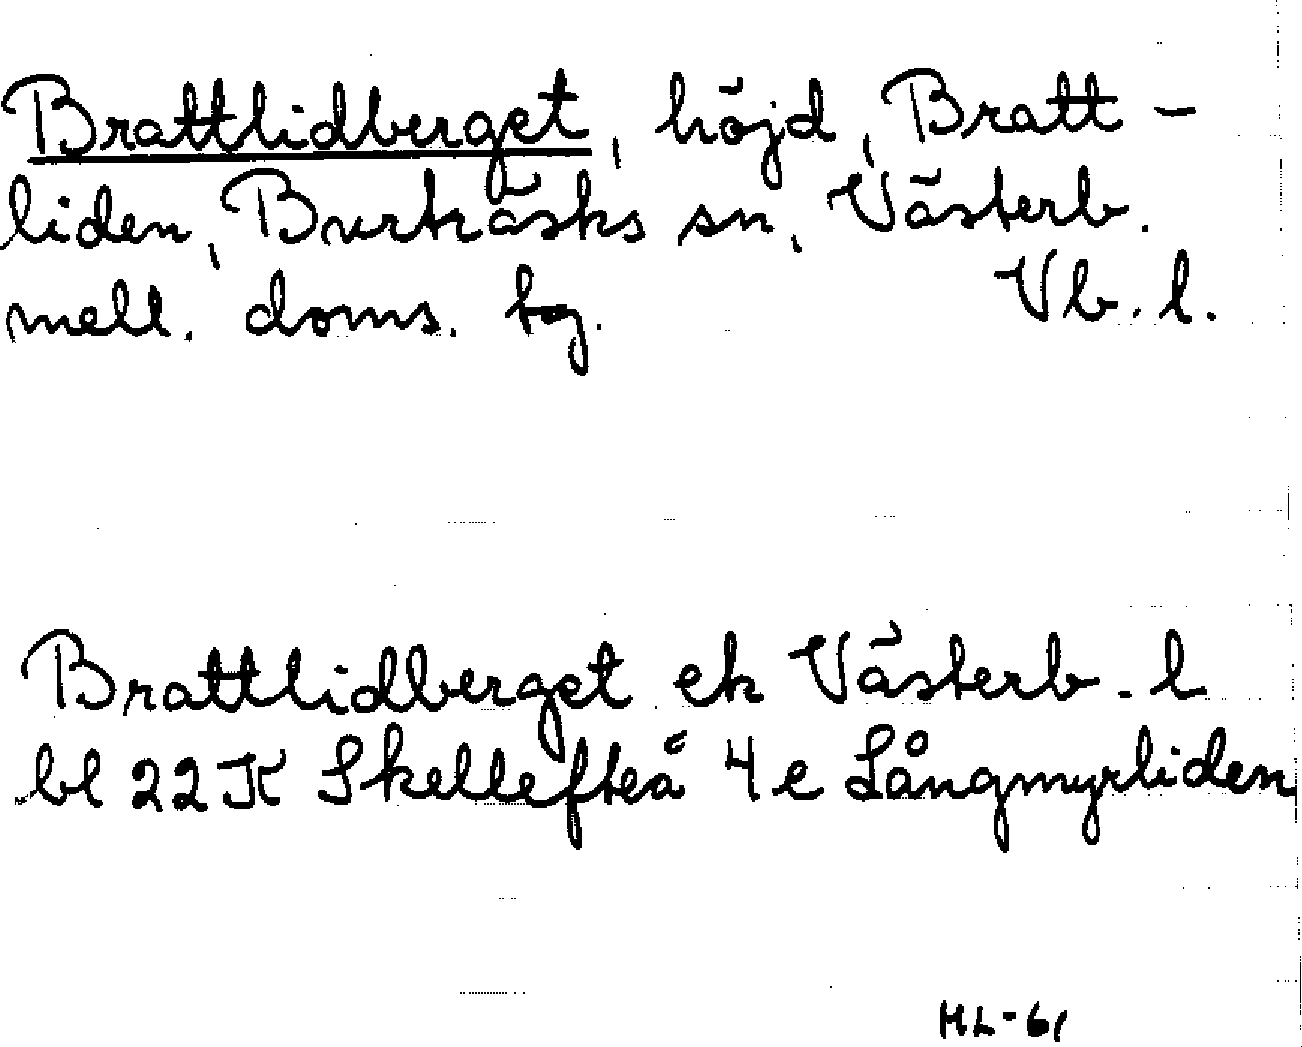 Brattlidberget, höjd, Bratt-
liden, Burträsks sn, Västerb.
mell. doms. tg. Vb. l.
Brattlidberget ek Västerb. l
bl 22K Skellefteå 4e Långmyrliden
HL-61